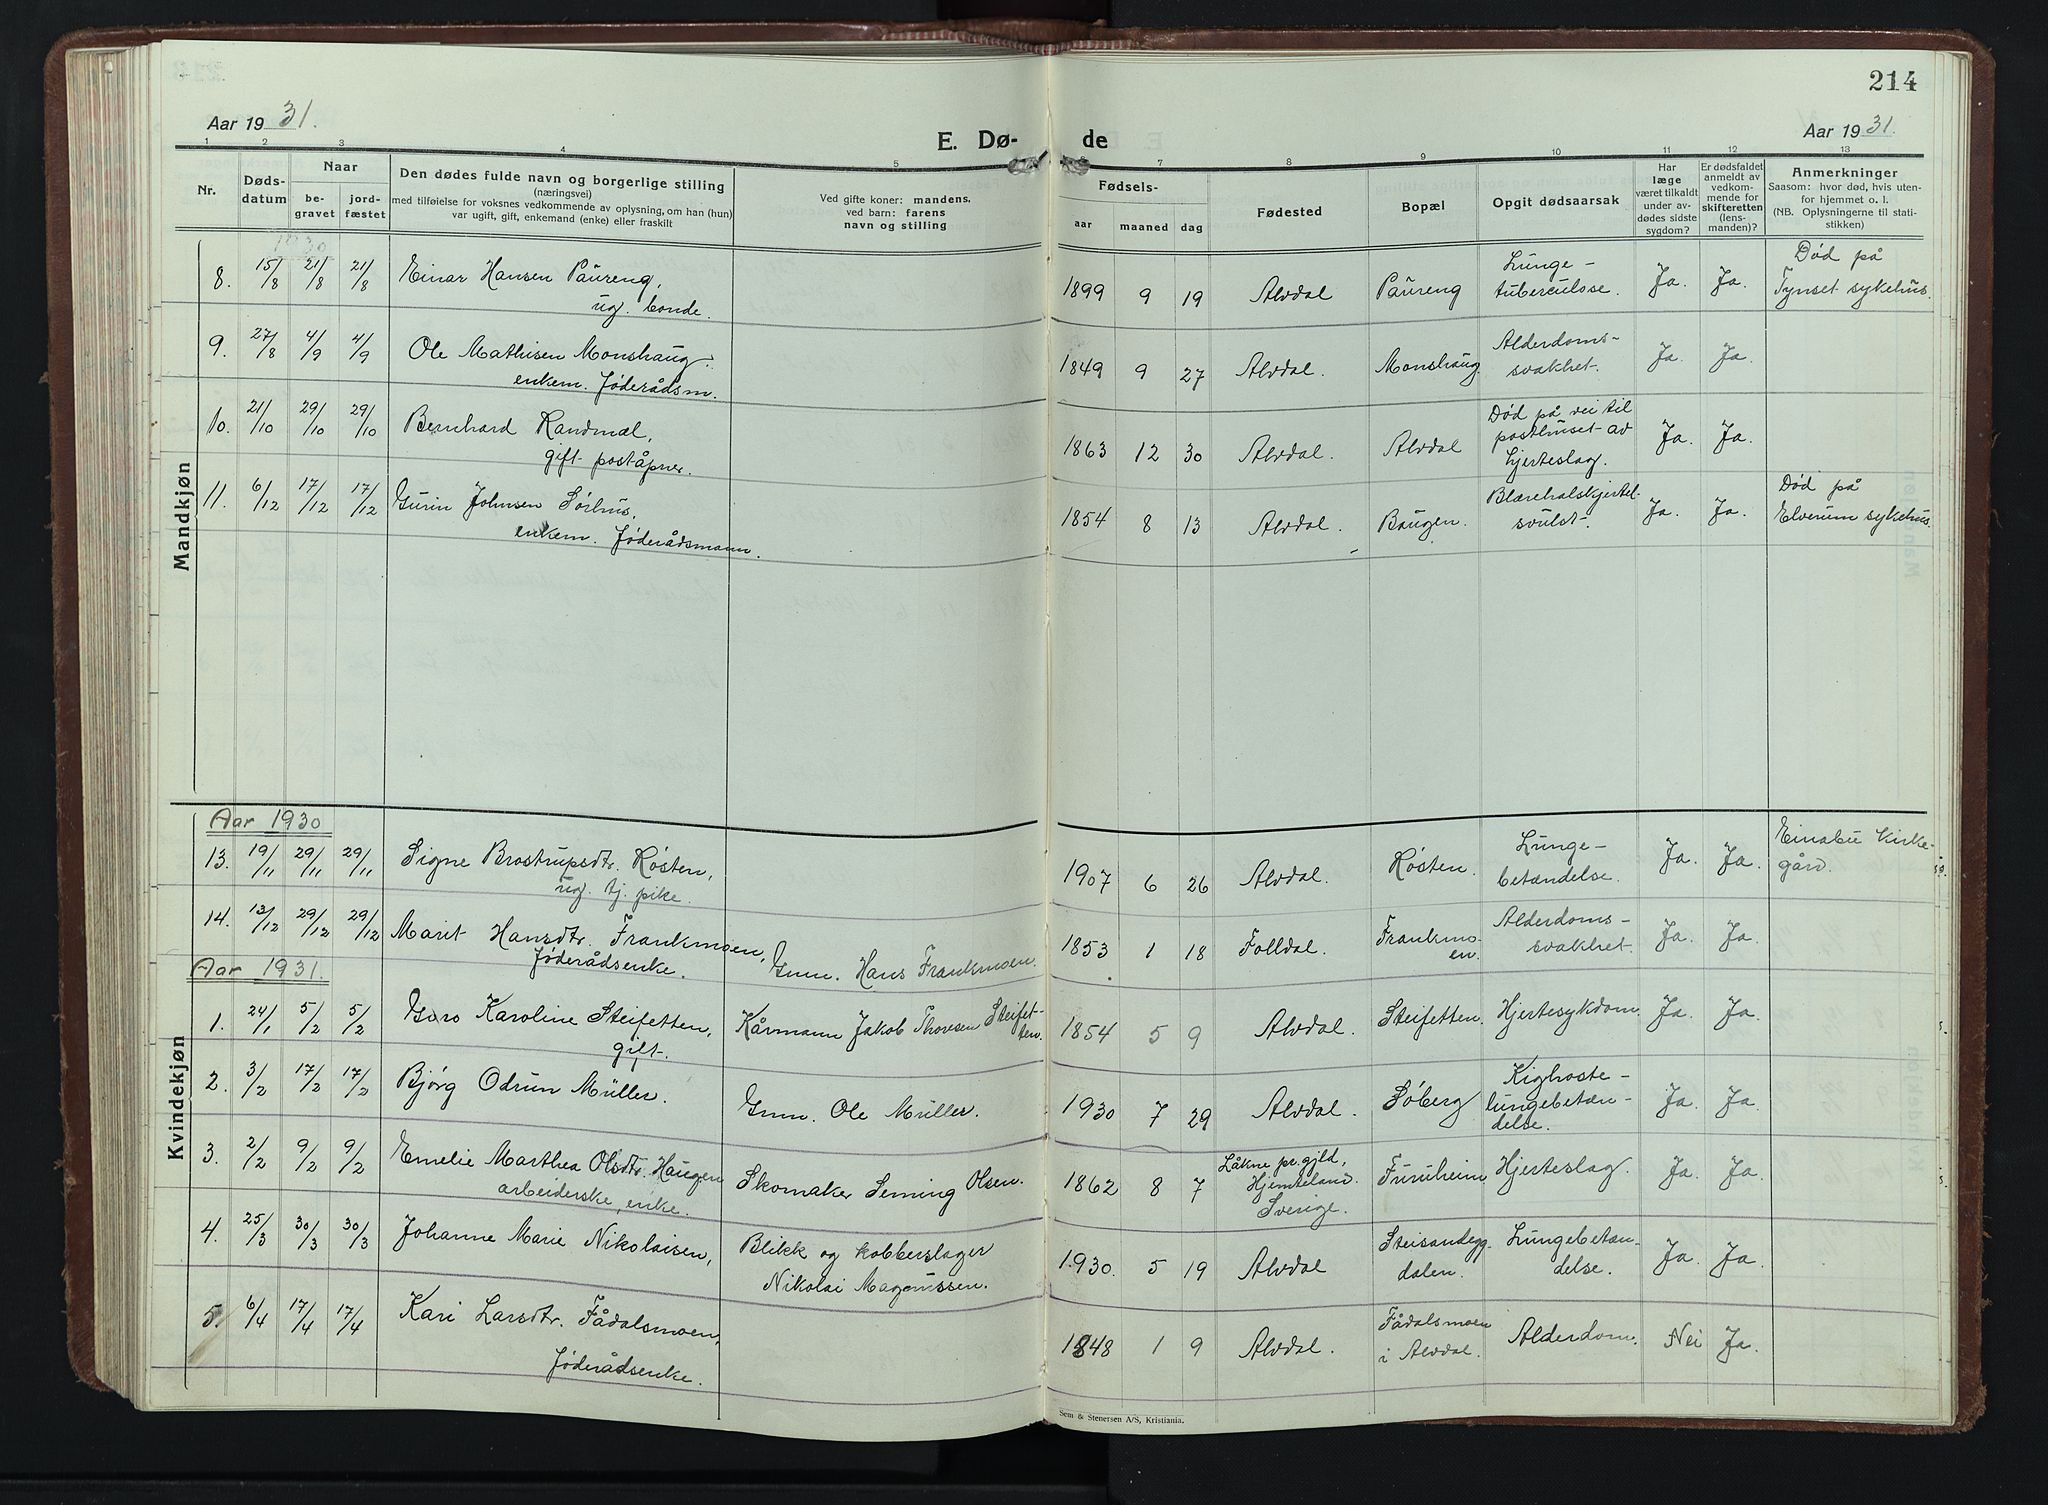 214
Aar 1931.
E. Dø-
de
Aar 1931.
1 2 3 4 5 7 8 9 10 11 12 13
Nr.
Døds-
datum
Naar
be-
gravet
jord-
fæstet
Den dødes fulde navn og borgerlige stilling
(næringsvei)
med tilføielse for voksnes vedkommende av oplysning, om han (hun)
var ugift, gift, enkemand (enke) eller fraskilt
Ved gifte koner: mandens.
ved barn: farens
navn og stilling
Fødsels-
aar maaned dag
Fødested
Bopæl
Opgit dødsaarsak
Har
læge
været tilkaldt
under av-
dødes sidste
sygdom?
Er dødsfaldet
anmeldt av
vedkom-
mende for
skifteretten
(lens-
manden)?
Anmerkninger
Saasom: hvor død, hvis uten-
for hjemmet o. l.
(NB. Oplysningerne til stati-
stikken)
Mandkjøn
1930
8. 15/8 21/8 21/8 Einar Hansen Paureng,
ug. bonde.
1899 9 19 Alvdal Paureng
Lunge-
tuberculose.
Ja. Ja.
Død på
Tynset sykehus.
9. 27/8 4/9 4/9 Ole Mathisen Monshaug.
enkem. Føderådsm.
1849 9 27 Alvdal. Monshaug.
Alderdoms-
svakhet.
Ja. Ja.
10. 21/10 29/10 29/10 Bernhard Randmæl,
gift poståpner.
1863 12 30 Alvdal. Alvdal
Død på vei til
posthuset av
hjerteslag.
Ja. Ja.
11. 6/12 17/12 17/12 Gurin Johnsen Sørhus,
enkem. Føderådsmann.
1854 8 13 Alvdal. Baugen.
Blærehalskjertel-
svulst.
Ja. Ja.
Død på
Elverum sykehus.
Kvindekjøn
Aar 1930
13. 19/11 29/11 29/11 Signe Brostrupsdtr. Røsten,
ug. tj. pike.
1907 6 26 Alvdal. Røsten.
Lunge-
betændelse.
Ja. Ja.
Einabu Kirke-
gård.
14. 13/12 29/12 29/12 Marit Hansdtr. Frankmoen,
Føderådsenke.
Grm. Hans Frankmoen.
1853 1 18 Folldal.
Frankmo-
en.
Alderdoms-
svakhet.
Ja. Ja.
Aar 1931.
1. 24/1 5/2 5/2 Guro Karoline Steifetten,
gift.
Kårmann Jakob Thoresen Steifet-
ten.
1854 5 9 Alvdal. Steifetten. Hjertesykdom. Ja. Ja.
2. 3/2 17/2 17/2 Bjørg Odrun Müller.
Grm. Ole Müller.
1930 7 29 Alvdal. Søberg
Kighoste-
lungebetæn-
delse.
Ja. Ja.
3. 2/2 9/2 9/2 Emelie Marthea Olsdtr. Haugen
arbeiderske, enke.
Skomaker Seming Olsen.
1862 8 7
Låkne pr.gjld,
Hjemteland.
Sverige.
Furuheim Hjerteslag. Ja. Ja.
4. 25/3 30/3 30/3 Johanne Marie Nikolaisen,
Blikk og kobberslager
Nikolai Magnussen.
1930. 5 19 Alvdal
Steisandegg-
dalen.
Lungebetæn-
delse.
Ja. Ja.
5. 6/4 17/4 17/4 Kari Larsdtr. Fådalsmoen,
Føderådsenke.
1848 1 9 Alvdal.
Fådalsmoen
i Alvdal.
Alderdom. Nei Ja.
Sem & Stenersen A/S, Kristiania.